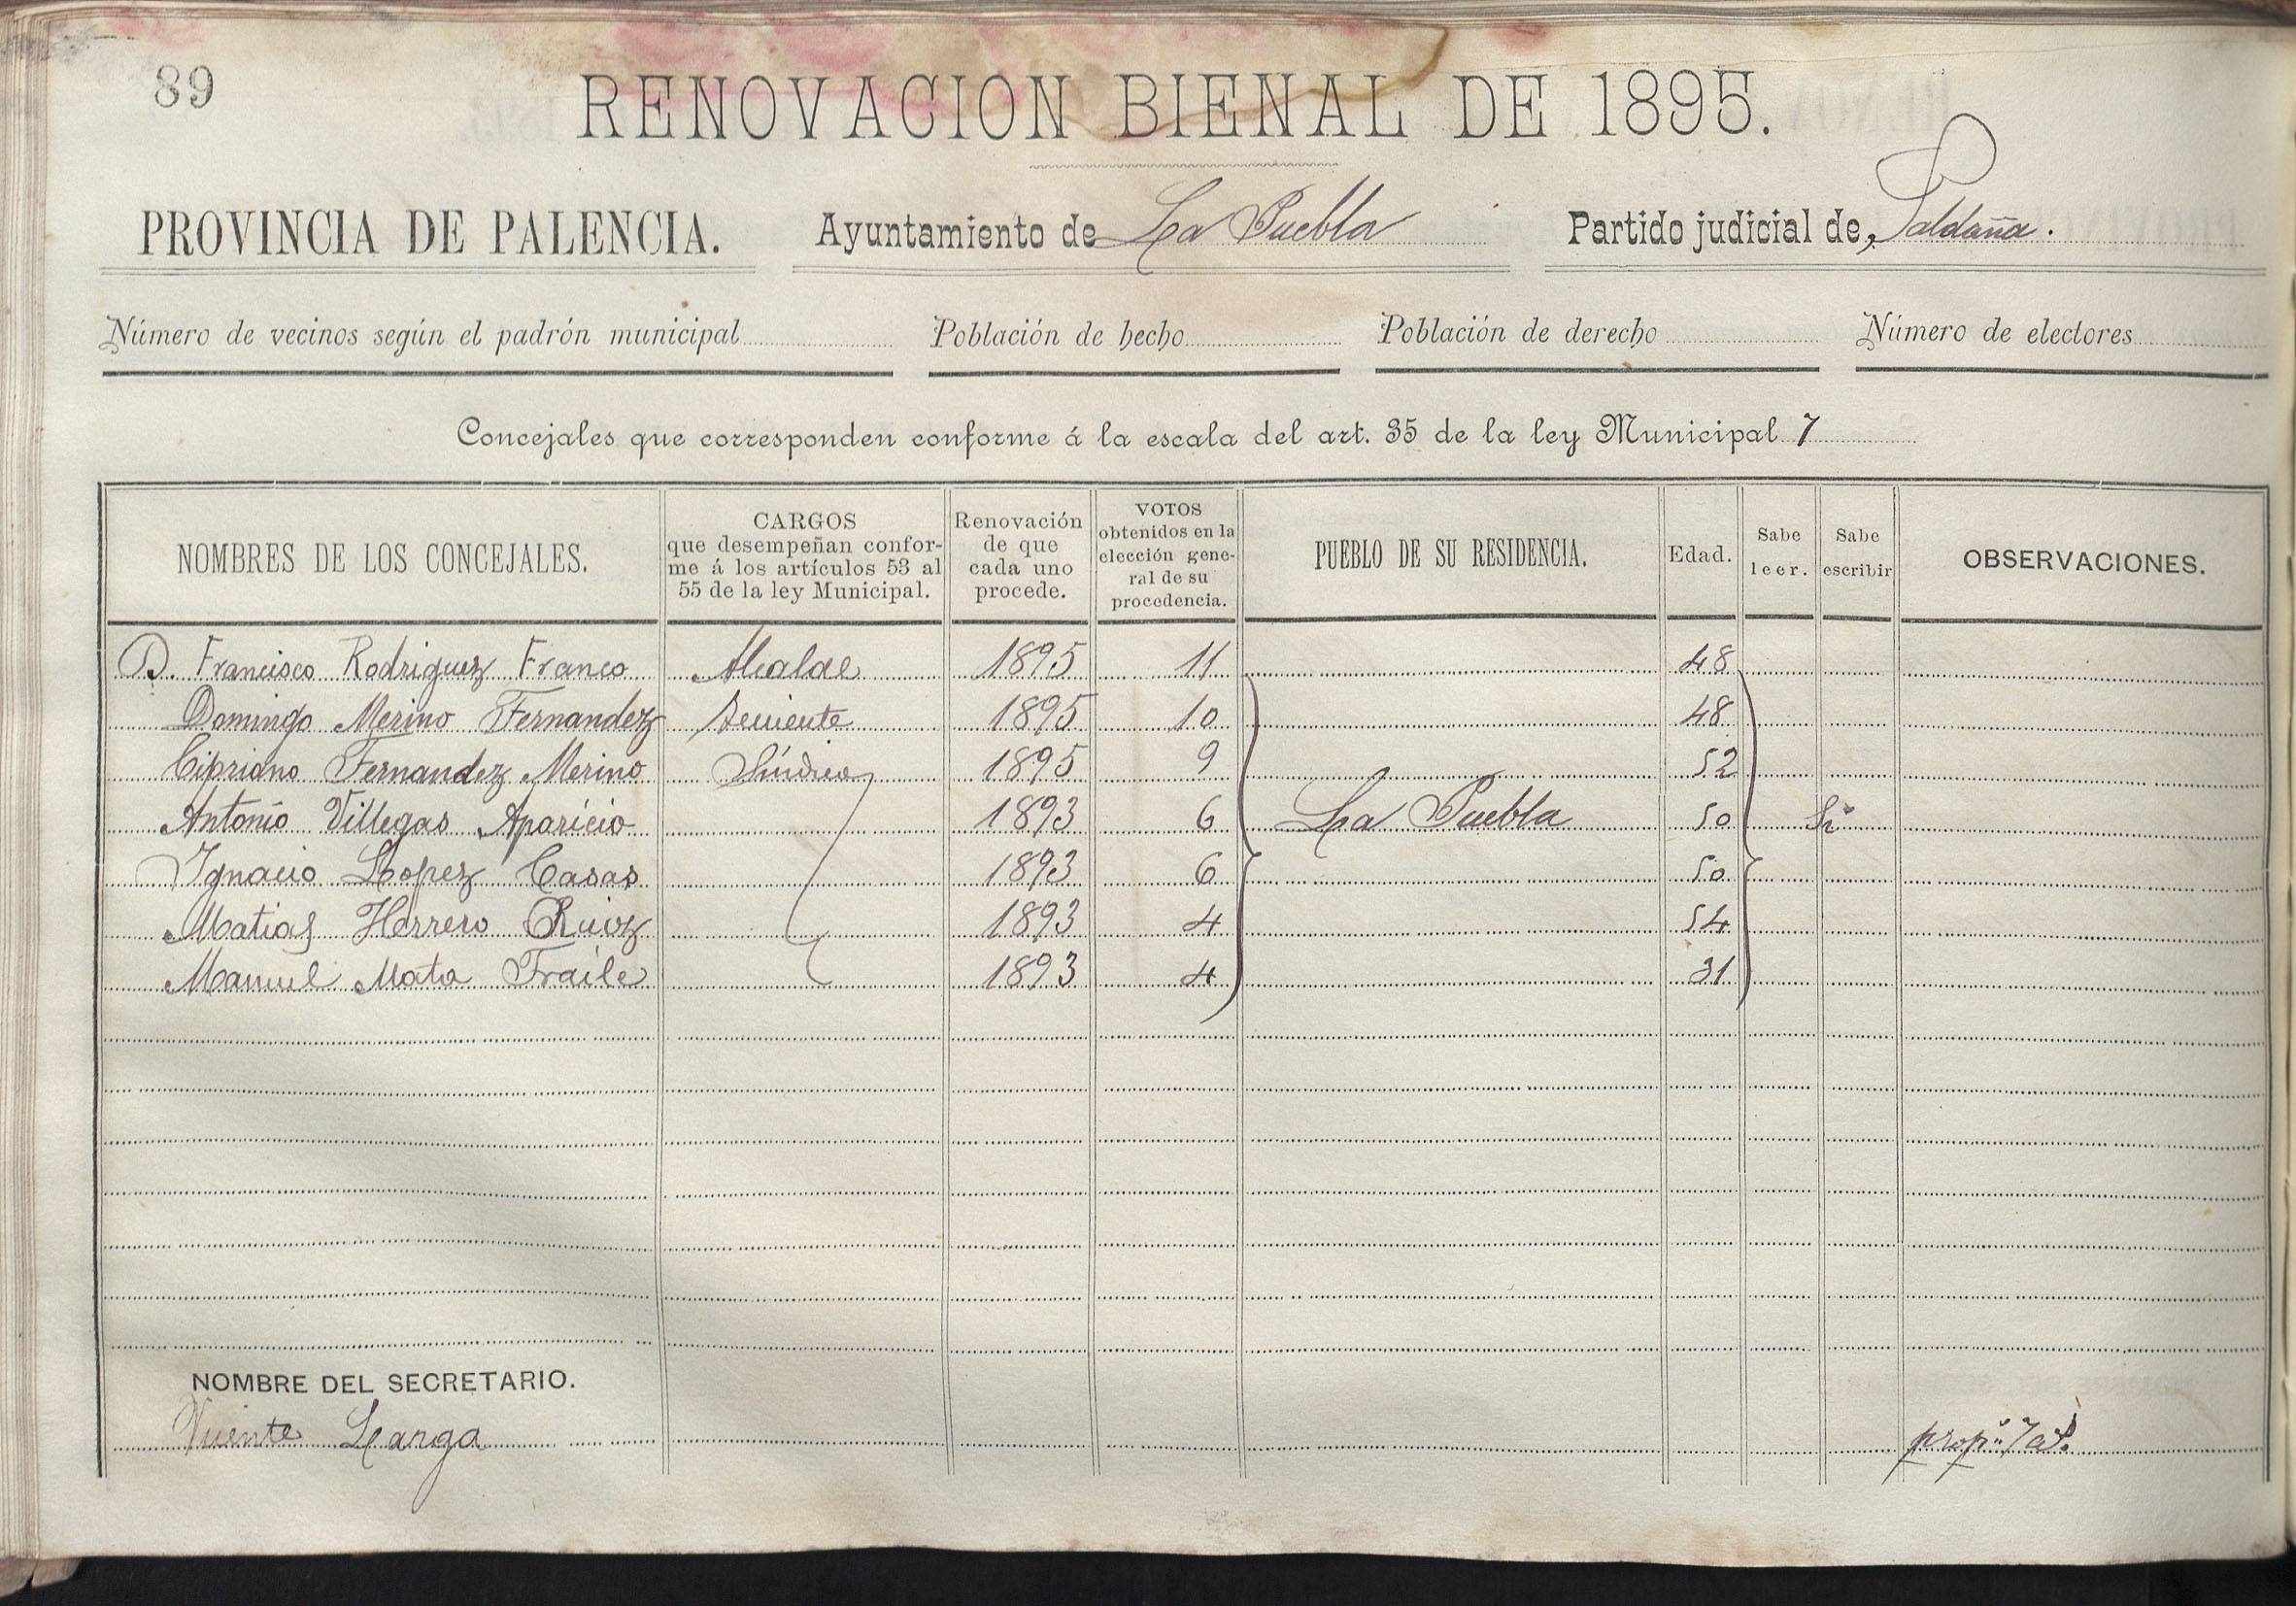 89
RENOVACION BIENAL DE 1895.
PROVINCIA DE PALENCIA. Ayuntamiento de La Puebla Partido judicial de Saldaña.
Número de vecinos según el padrón municipal Población de hecho Población de derecho Número de electores
Concejales que corresponden conforme á la escala del art. 35 de la ley Municipal 7
NOMBRES DE LOS CONCEJALES.
CARGOS
que desempeñan confor-
me á los artículos 53 al
55 de la ley Municipal.
Renovación
de que
cada uno
procede.
VOTOS
obtenidos en la
elección gene-
ral de su
procedencia.
PUEBLO DE SU RESIDENCIA.
Edad.
Sabe
leer.
Sabe
escribir
OBSERVACIONES.
D. Francisco Rodriguez Franco Alcalde 1895 11 48
Domingo Merino Fernandez Teniente 1895 10 48
Cipriano Fernandez Merino Síndico 1895 9 52
Antonio Villegas Aparicio 1893 6 La Puebla 50 Si
Ignacio Lopez Casas 1893 6 50
Matias Herrero Ruiz 1893 4 54
Manuel Mata Fraile 1893 4 31
NOMBRE DEL SECRETARIO.
Vicente Larga